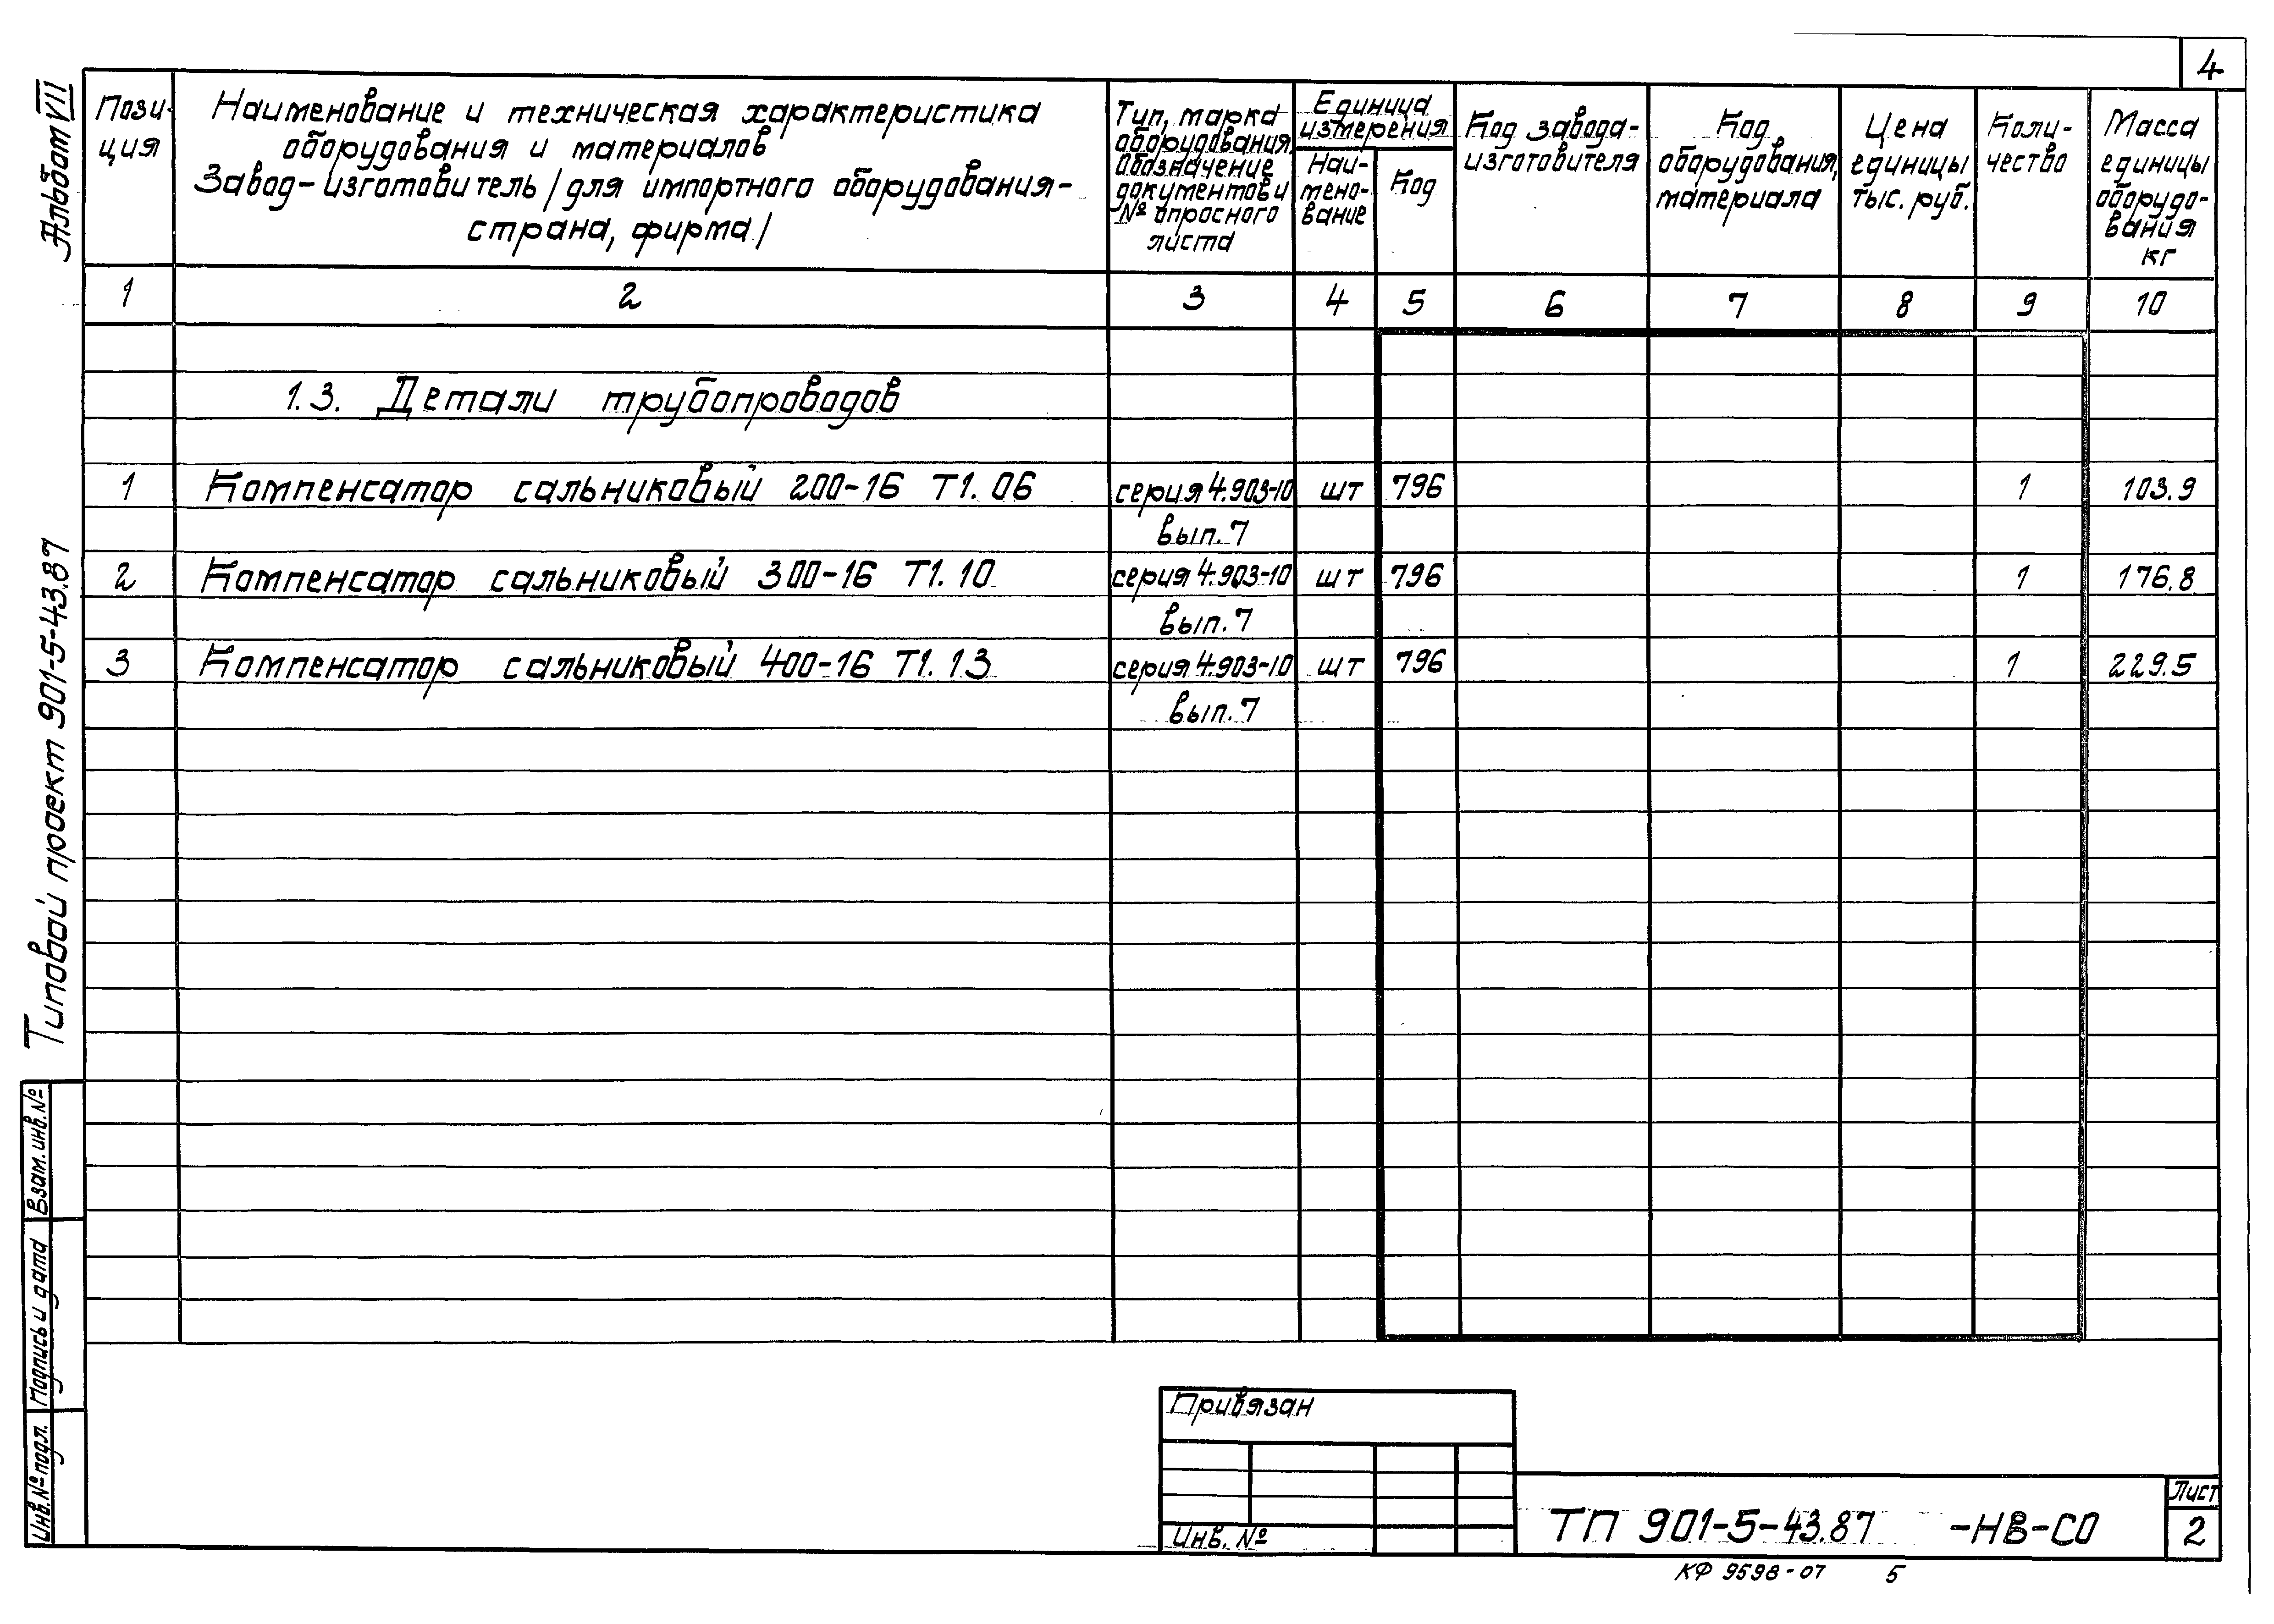 4
Альбом VII
Типовой проект 901-5-43.87
Взам. инв. №
Подпись и дата
Инв. № подл.
Пози-
ция
Наименование и техническая характеристика
оборудования и материалов
Завод-изготовитель /для импортного оборудования-
страна, фирма/
Тип, марка
оборудования.
обозначение
документов и
№ опросного
листа
Единица
измерения
Наи-
мено-
вание
Код
Код завода-
изготовителя
Код
оборудования,
материала
Цена
единицы
тыс. руб.
Коли-
чество
Масса
единицы
оборудо-
вания
кг
1 2 3 4 5 6 7 8 9 10
1.3. Детали трубопроводов
1 Компенсатор сальниковый 200-16 Т1.06 серия 4.903-10 шт 796 1 103.9
вып. 7
2 Компенсатор сальниковый 300-16 Т1.10 серия 4.903-10 шт 796 1 176.8
вып. 7
3 Компенсатор сальниковый 400-16 Т1.13 серия 4.903-10 шт 796 1 229.5
вып. 7
Привязан
Инв. №
ТП 901-5-43.87 -НВ-СО
Лист
2
КФ 9598-07 5